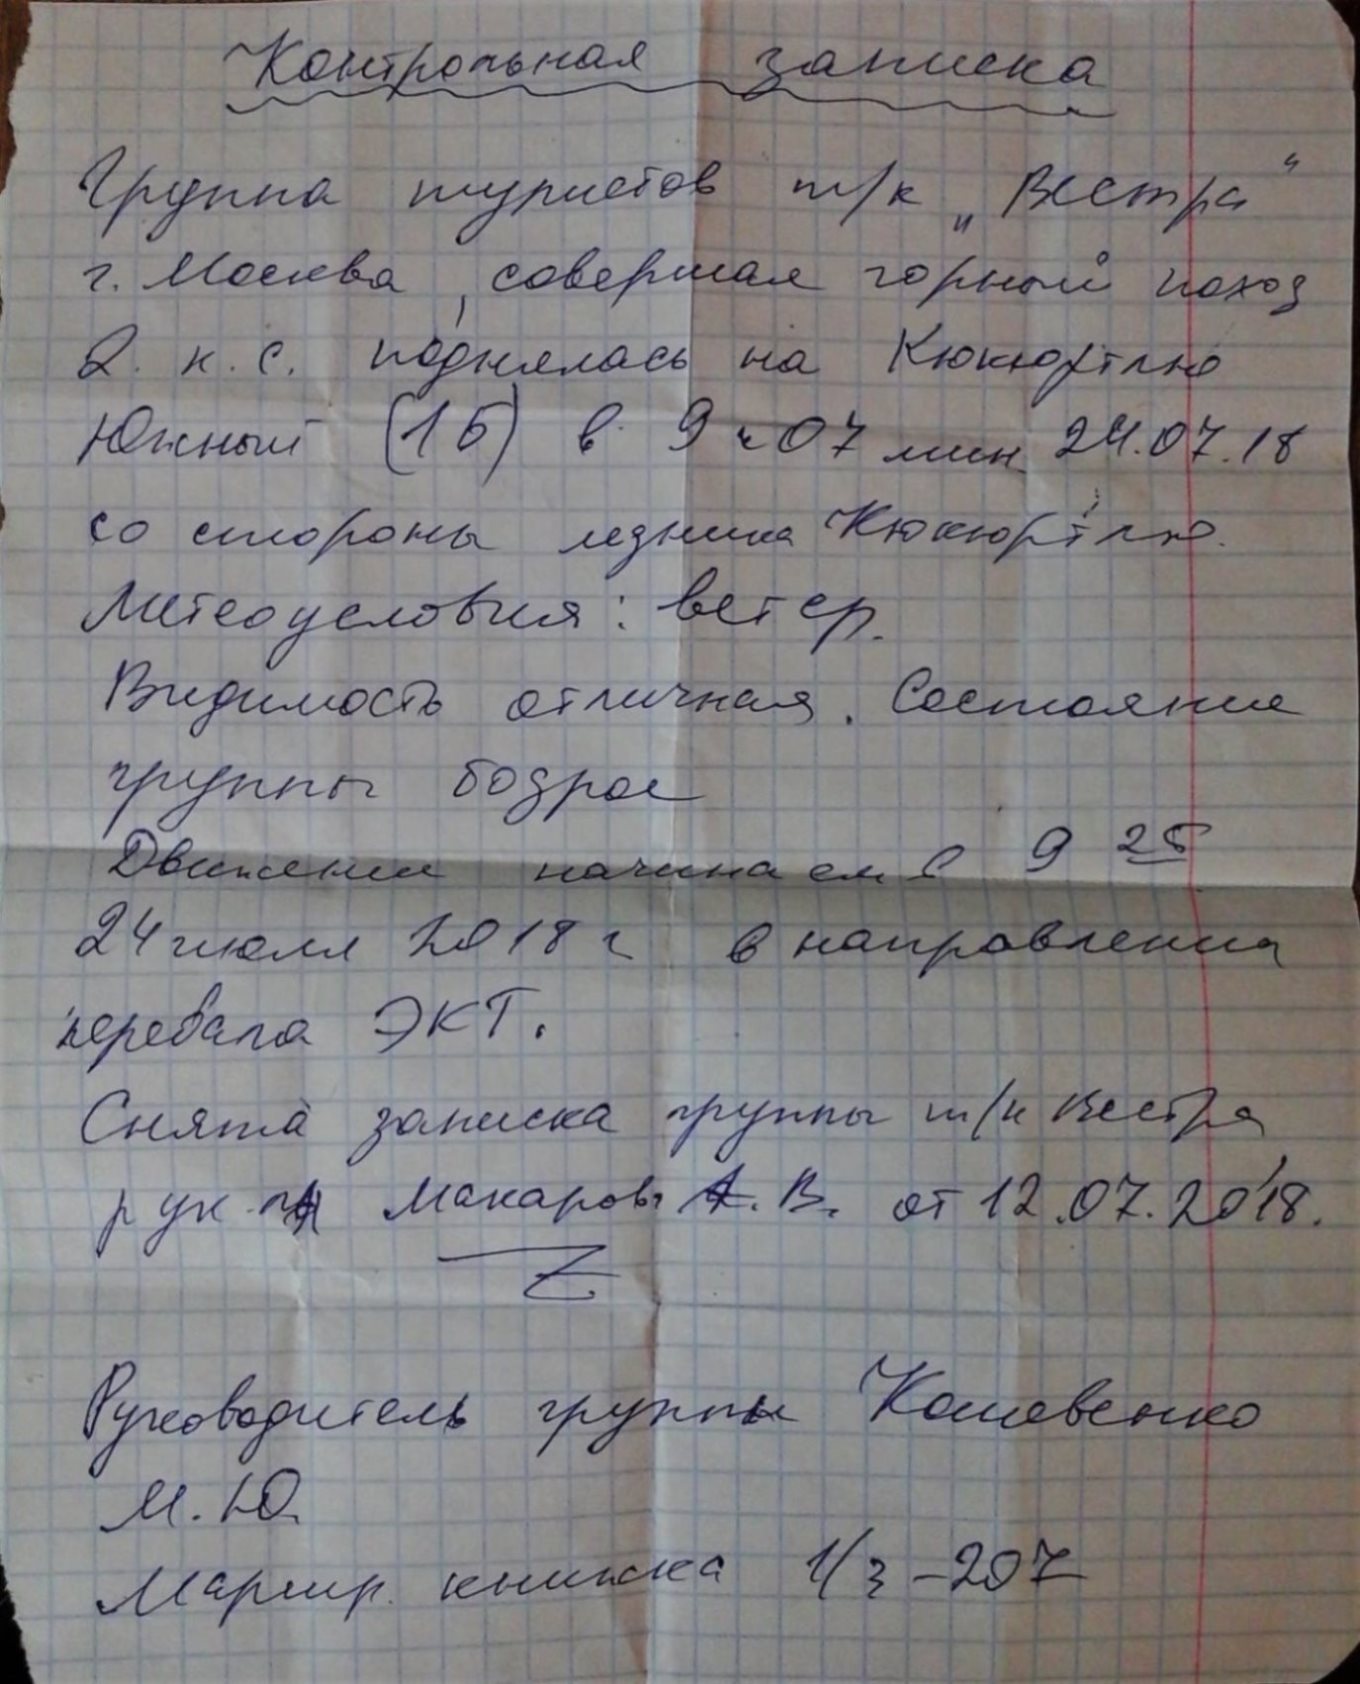 Контрольная записка
Группа туристов т/к „Вестра“
г. Москва, совершая горный поход
2 к.с. поднялась на Кюкюртлю
Южный (1Б) в 9ч07 мин 24.07.18
со стороны ледника Кюкюртлю.
Метеоусловия: ветер.
Видимость отличная. Состояние
группы бодрое
Движение начинаем с 9 25
24 июля 2018 г в направлении
перевала ЭКТ.
Снята записка группы т/к Вестра
рук. Макаров А.В. от 12.07.2018.
Руководитель группы
М.Ю.
Маршр. книжка 1/3-207